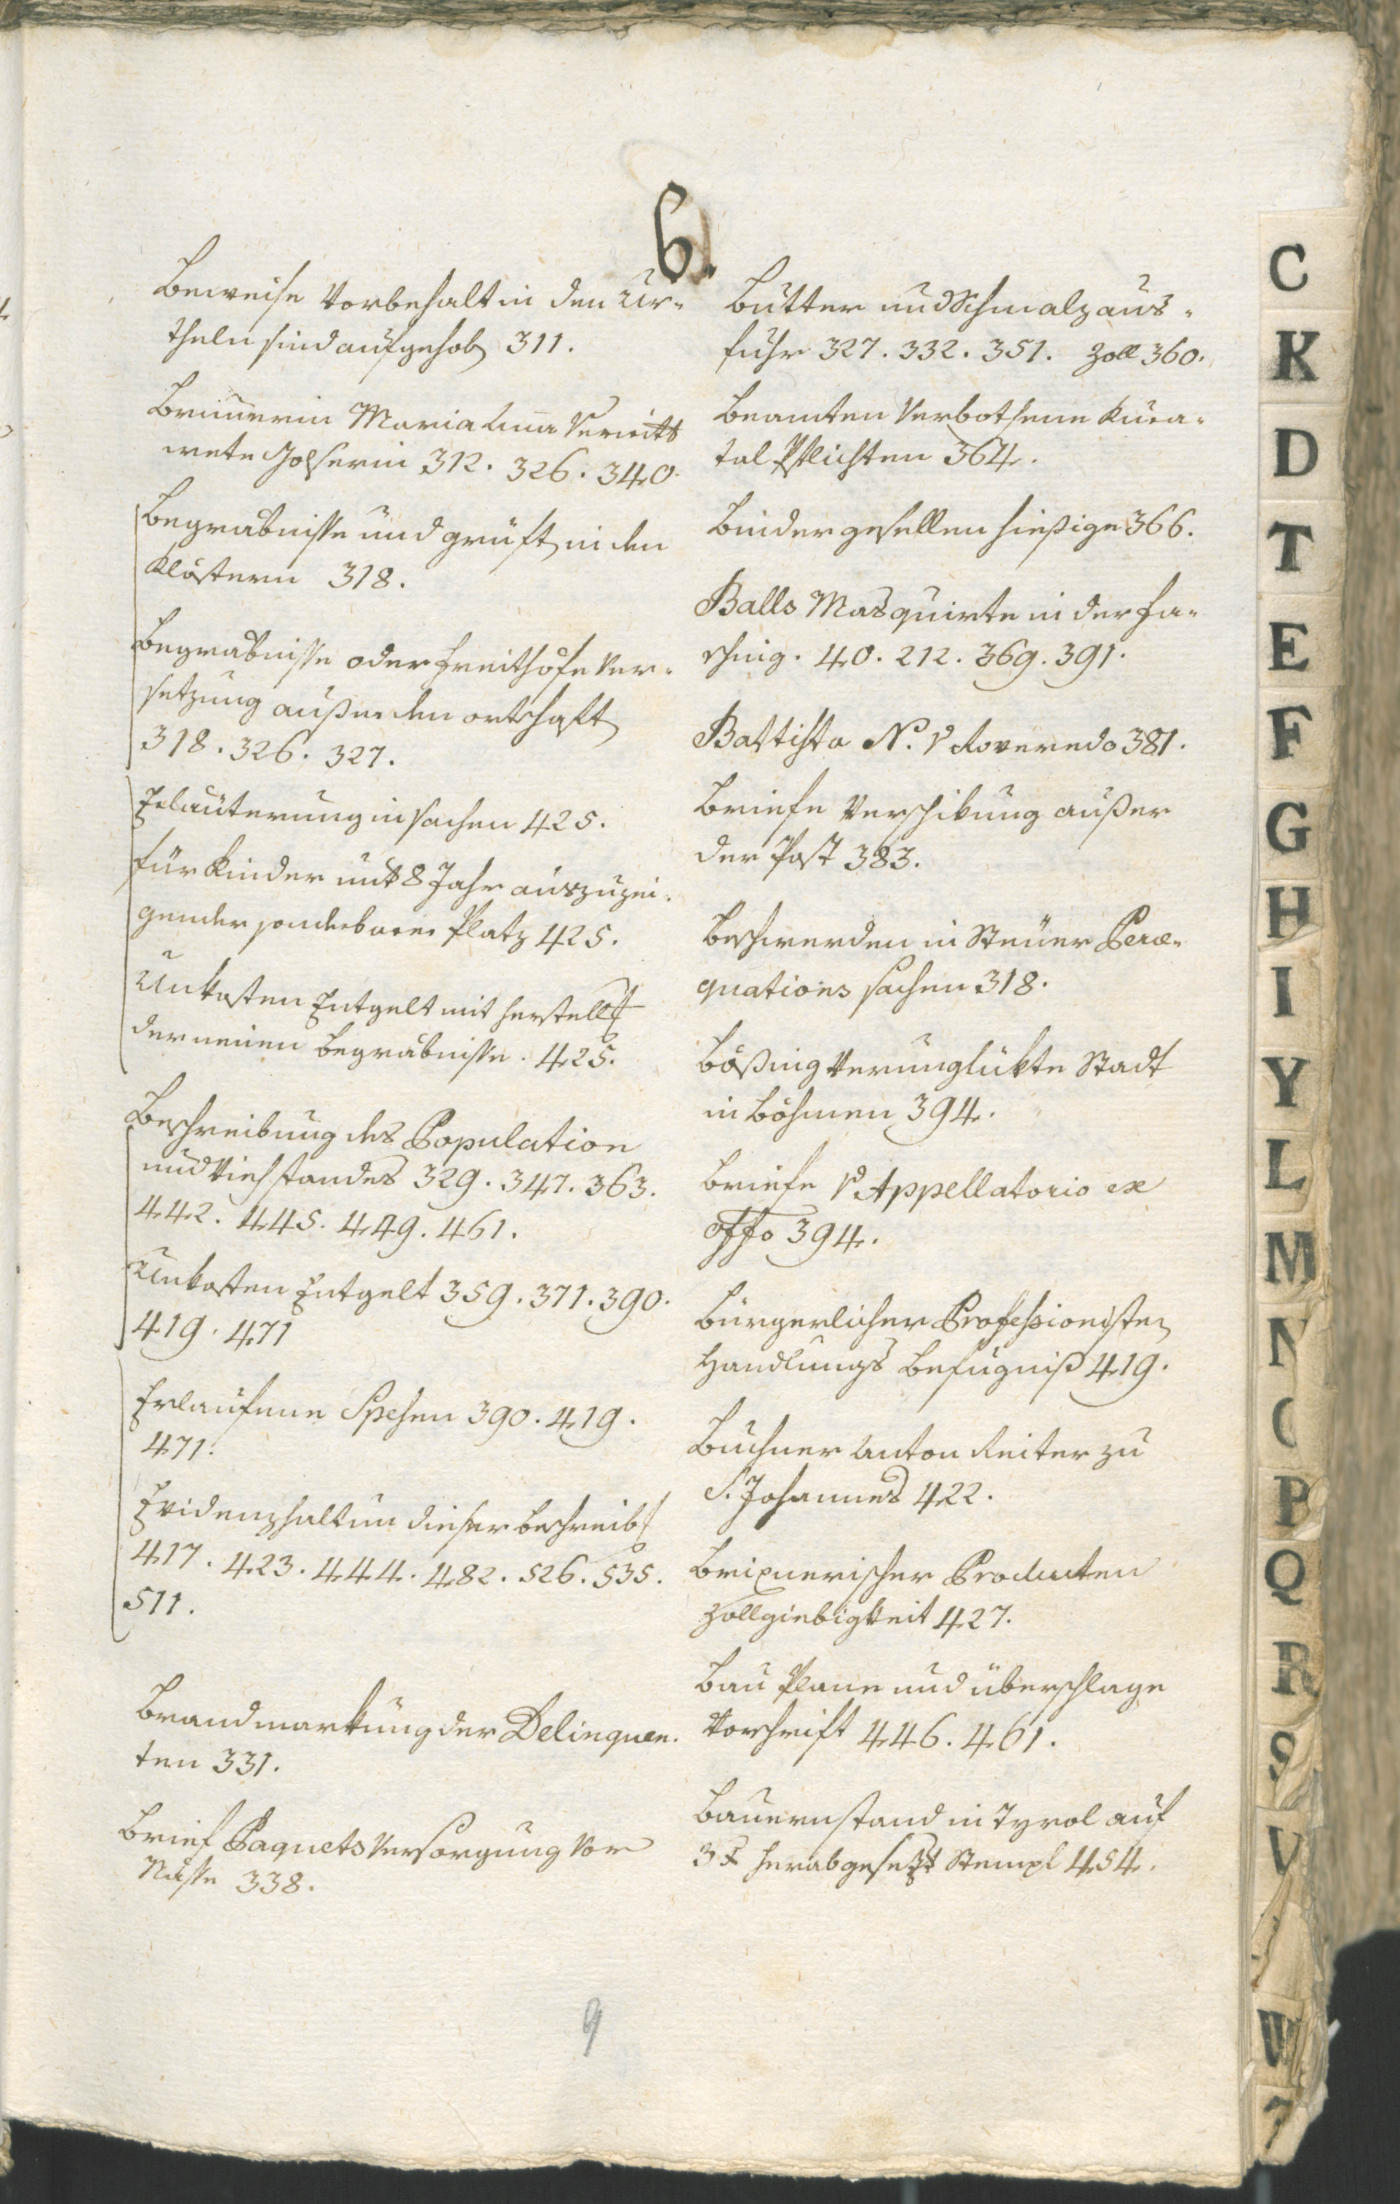 6.
Beweise Vorbehalt in den Ur-
theln sind aufgehob 311.
Brunerin Maria Anna Verwitt
wete Holserin 312. 326. 340.
Begräbnisse und Gruft in den
Klöstern 318.
Begräbnisse oder Freithöfe Ver-
setzung außer den ortschaft
318. 326. 327.
Erläuterung in sachen 425.
für Kinder unt 8 Jahr auszuzei-
gender sonderbarer Platz 425.
Unkosten Entgelt mit herstell
der neuen Begräbnisse. 425.
Beschreibung des Population
und Viehstandes 329. 347. 363.
442. 445. 449. 461.
Unkosten Entgelt 359. 371. 390.
419. 471
Erlaufene Spesen 390. 419.
471.
Evidenzhaltun dieser beschreib
417. 423. 444. 482. 526. 535.
511.
Brandmarkung der Delinquen-
ten 331.
Brief Paquets Versorgung vor
Nässe 338.
Butter und Schmalz aus-
fuhr 327. 332. 351. Zoll 360.
Beamten Verbothene Kura-
tal Pflichten 364.
Bindergesellen hießige 366.
Balls Masquirte in der Fa-
sching. 40. 212. 369. 391.
Battista N. v Roveredo 381.
Briefe Verschikung außer
der Post 383.
Beschwerden in Steuer Peræ-
quations sachen 318.
Bößing Verunglükte Stadt
in Böhmen 394.
Briefe v Appellatorio ex
offo 394.
Bürgerlicher Professionisten
Handlungs Befugniß 419.
Buchner Anton Reiter zu
S. Johannes 422.
Brixnerischer Producten
Zollgiebigkeit 427.
Bau Plane und überschlage
Vorschrift 446. 461.
Bauernstand in Tyrol auf
3 x herabgesezt Stempl 454.
9
C
K
D
T
E
F
G
H
I
Y
L
M
N
P
Q
R
S
V
W